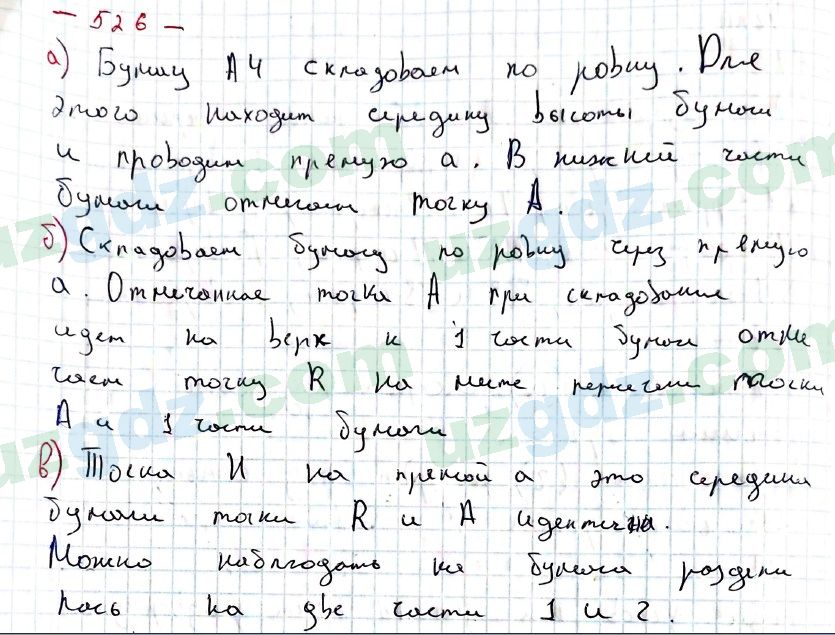 - 526 -
а) Бумагу А4 складоваем по ровну. Для
этого находит середину высоты бумаги
и проводим прямую а. В нижней части
бумаги отмечаем точку А.
б) Складоваем бумагу по ровну через прямую
а. Отмеченная точка А при складование
идет на верх к 1 части бумаги отме
чаем точку R на месте пересечени точки
А и 1 части бумаги
в) Точка И на прямой а это середина
бумаги точки R и А идентична.
Можно наблюдать бумага раздели
лось на две части 1 и 2.
uzgdz.com